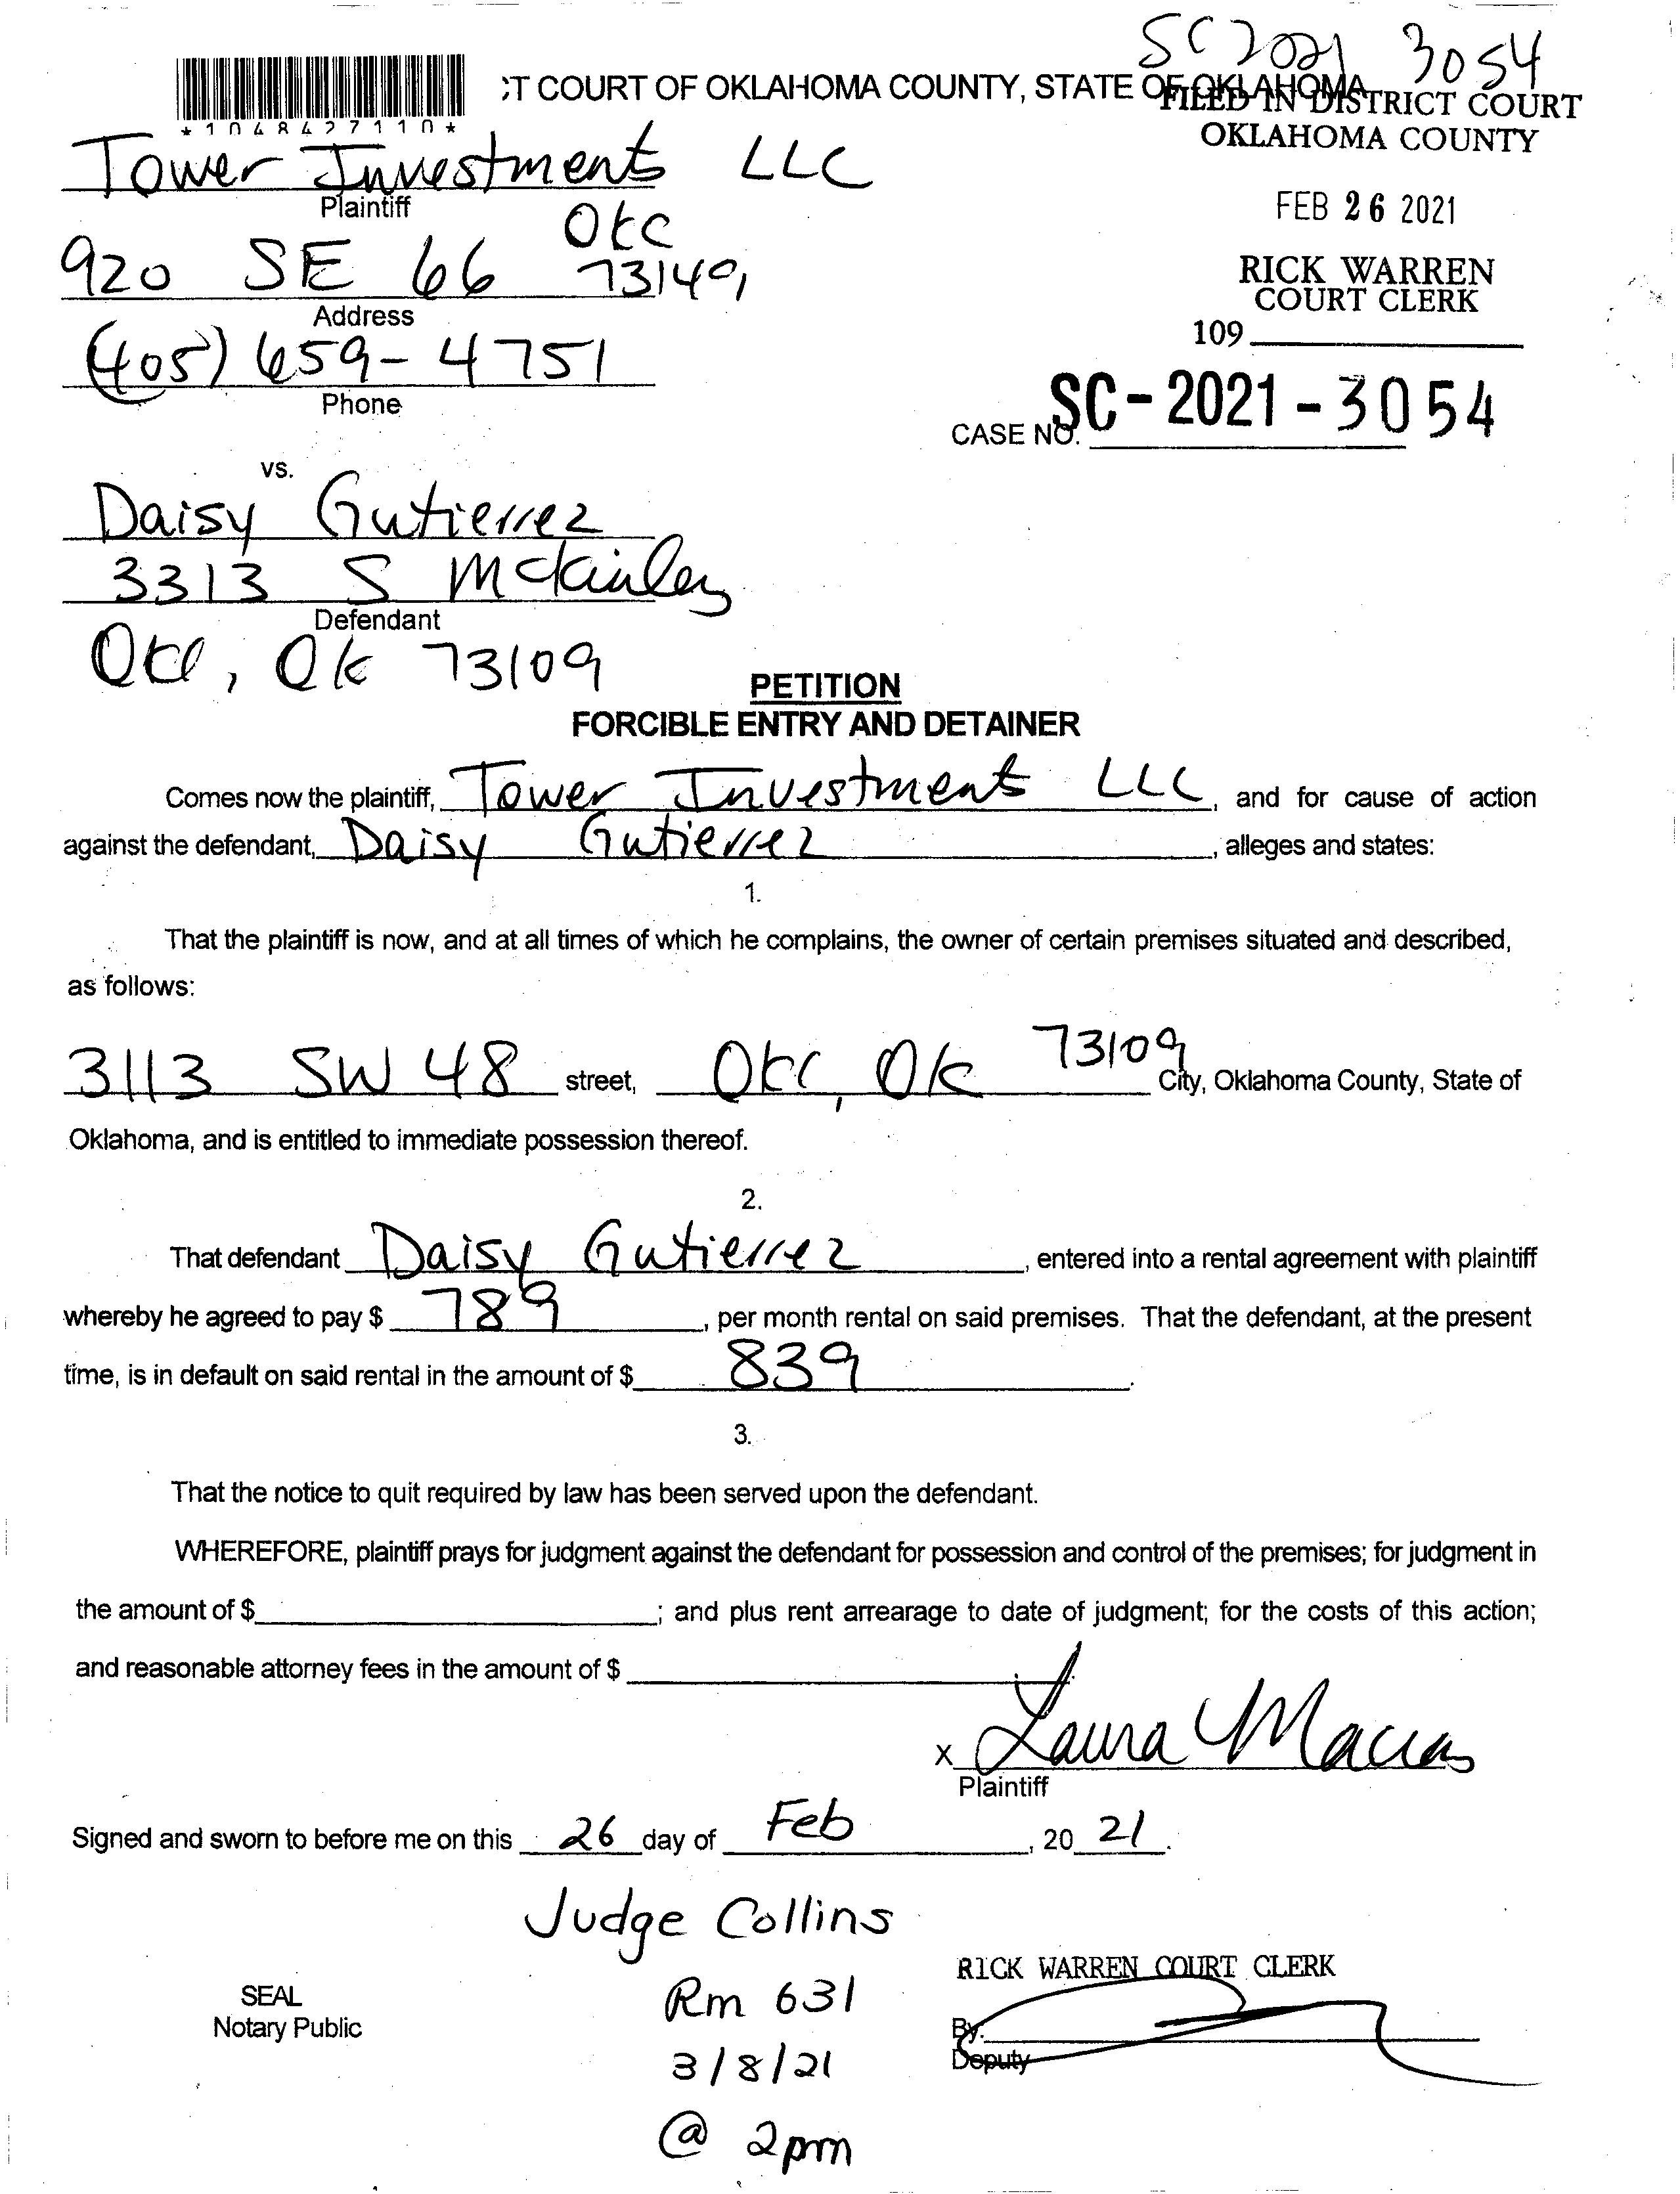 SC2021 3054
;T COURT OF OKLAHOMA COUNTY, STATE OF OKLAHOMA
FILED IN DISTRICT COURT
OKLAHOMA COUNTY
*1048427110*
Tower Investments LLC
Plaintiff
FEB 26 2021
OKC
920 SE 66 73149
Address
RICK WARREN
COURT CLERK
109
(405) 659-4751
Phone
CASE NO. SC-2021-3054
vs.
Daisy Gutierrez
3313 S Mckinley
Defendant
OKC, Ok 73109
PETITION
FORCIBLE ENTRY AND DETAINER
Comes now the plaintiff, Tower Investments LLC, and for cause of action
against the defendant, Daisy Gutierrez, alleges and states:
1.
That the plaintiff is now, and at all times of which he complains, the owner of certain premises situated and described,
as follows:
3113 SW 48 street, OKC, OK 73109 City, Oklahoma County, State of
Oklahoma, and is entitled to immediate possession thereof.
2.
That defendant Daisy Gutierrez, entered into a rental agreement with plaintiff
whereby he agreed to pay $ 789, per month rental on said premises. That the defendant, at the present
time, is in default on said rental in the amount of $ 839.
3.
That the notice to quit required by law has been served upon the defendant.
WHEREFORE, plaintiff prays for judgment against the defendant for possession and control of the premises; for judgment in
the amount of $ ; and plus rent arrearage to date of judgment; for the costs of this action;
and reasonable attorney fees in the amount of $ .
x Laura Macias
Plaintiff
Signed and sworn to before me on this 26 day of Feb, 20 21.
Judge Collins
Rm 631
3/8/21
@ 2pm
SEAL
Notary Public
RICK WARREN COURT CLERK
By:
Deputy